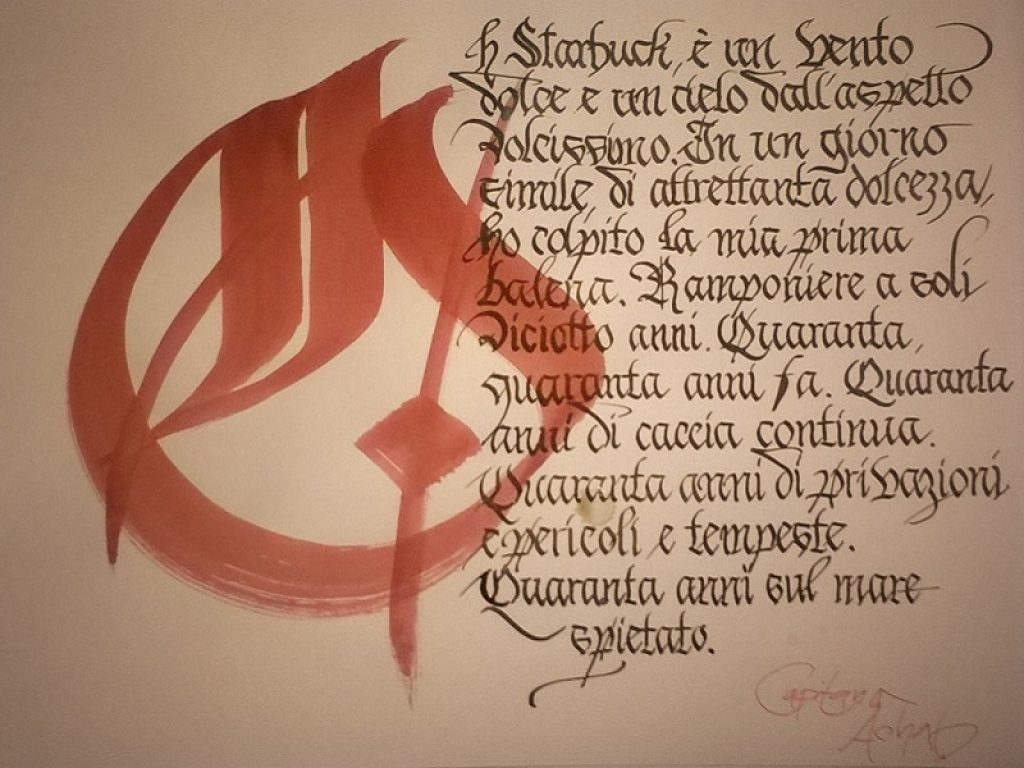 Oh Starbuck, è un vento
dolce e un cielo dall'aspetto
dolcissimo. In un giorno
simile, di altrettanta dolcezza,
ho colpito la mia prima
balena. Ramponiere a soli
diciotto anni. Quaranta,
quaranta anni fa. Quaranta
anni di caccia continua.
Quaranta anni di privazioni
e pericoli e tempeste.
Quaranta anni sul mare
spietato.
Capitano
Achab